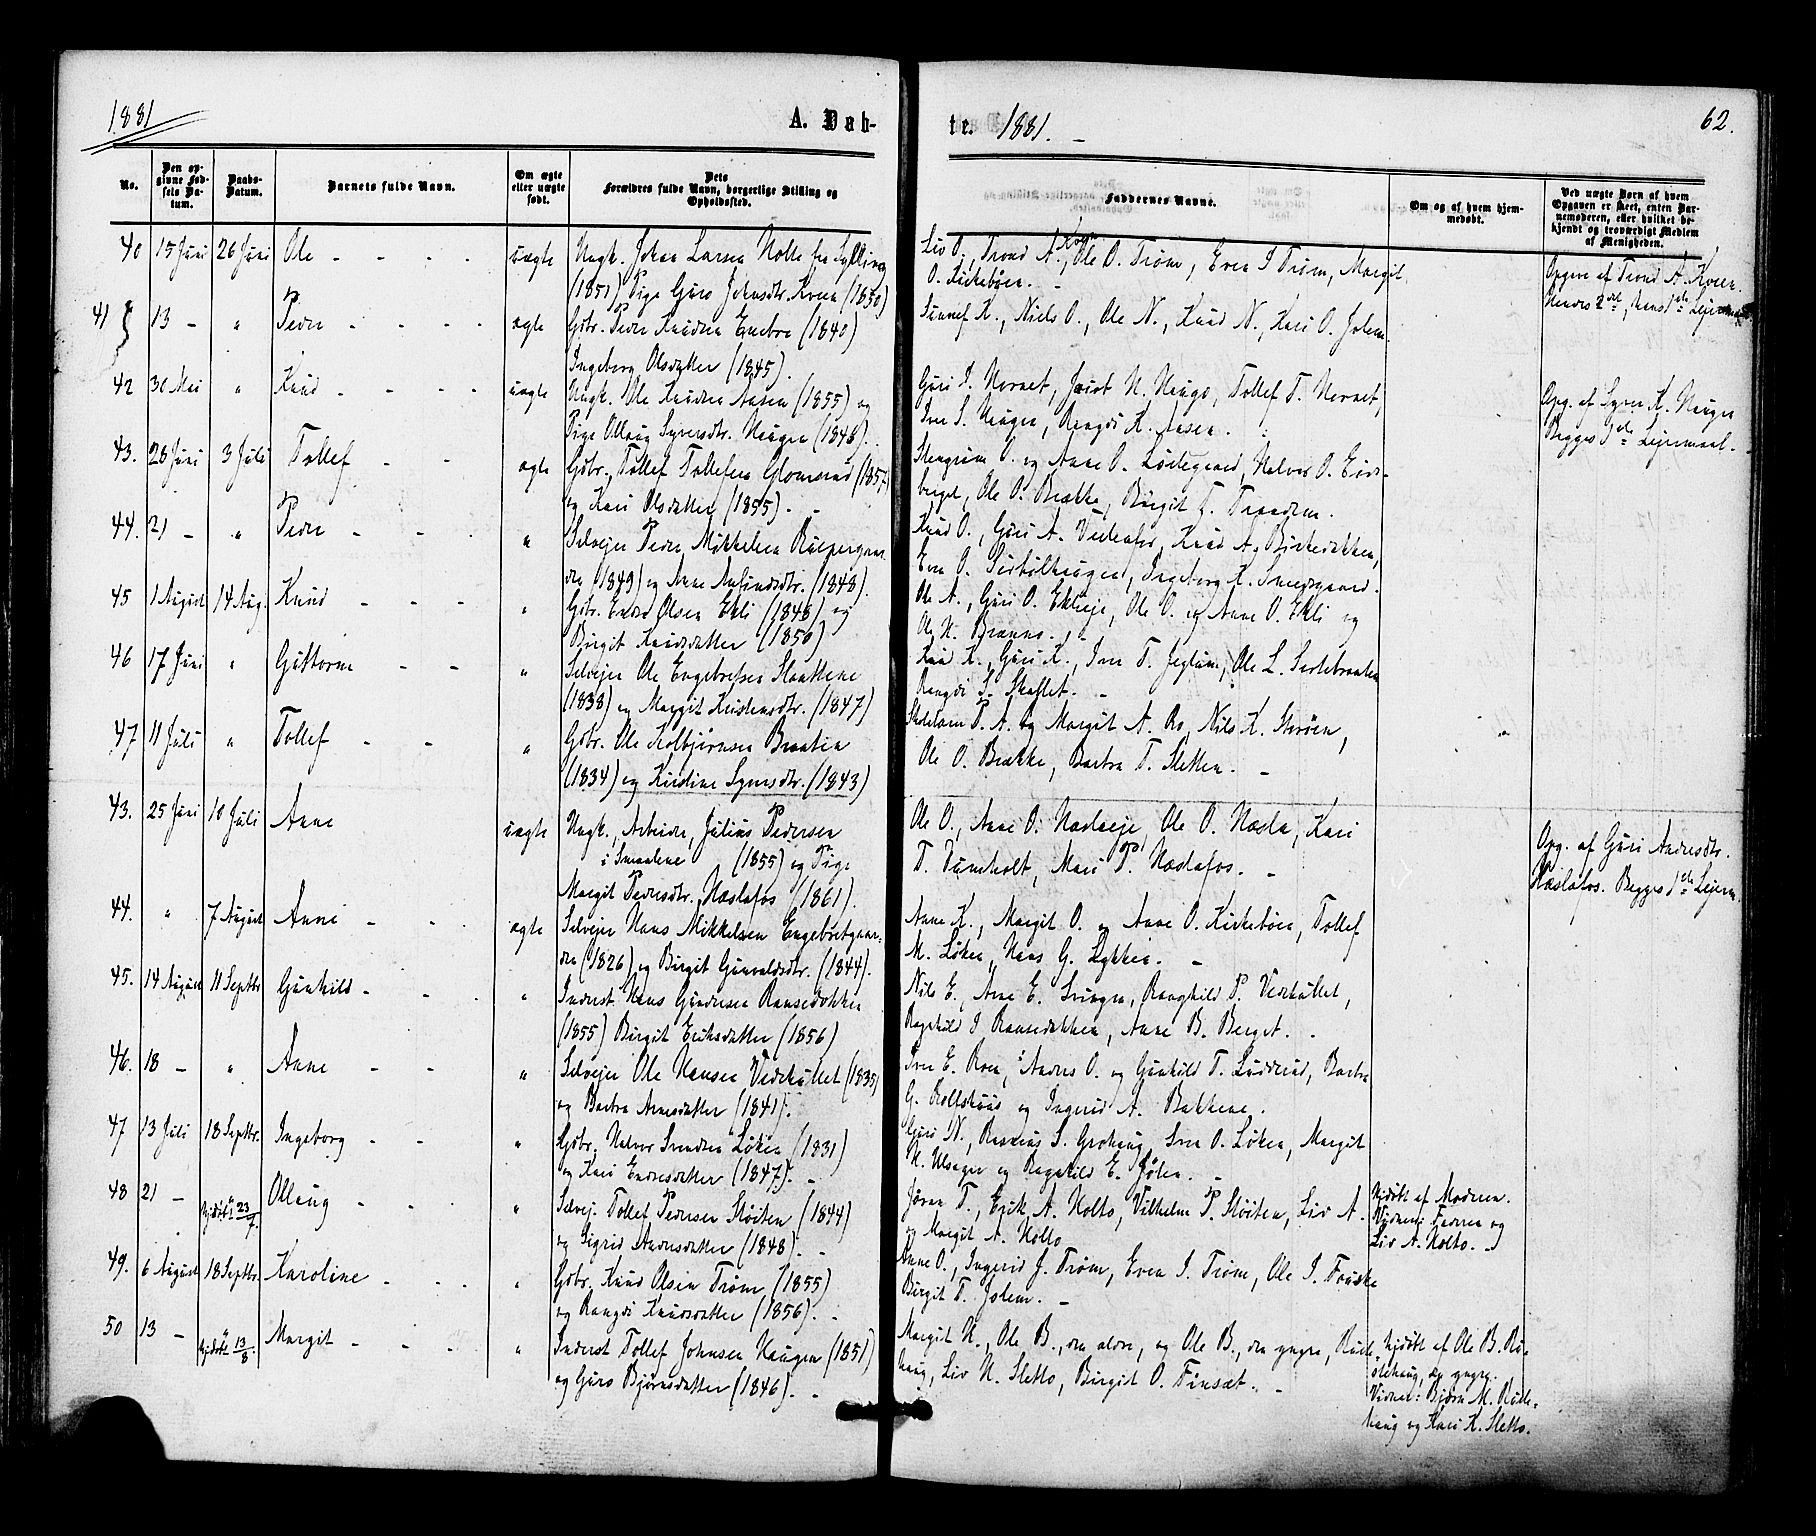 1881
A. Døb-
te. 1881. -
62.
No.
Den op-
givne Fød-
sels Da-
tum.
Daabs-
Datum.
Barnets fulde Navn.
Om ægte
eller uægte
født.
Dets
Forældres fulde Navn, borgerlige Stilling og
Opholdssted.
Faddernes Navne.
Om og af hvem hjem-
medøbt.
Ved uægte Børn af hvem
Opgaven er skeet, enten Bar-
nemoderen, eller hvilket be-
kjendt og troværdigt Medlem
af Menigheden.
40 15 Juni 26 Juni Ole - - - - uægte Ungk. Johan Larsen Holte fra Sylling
(1851) Pige Guro Johnsdtr. Kveen (1850)
Liv O., Trond A. Kveen, Ole O. Trøm, Even I Trøm, Margit
O. Kirkebøen. -
Opgive af Trond A. Kveen.
Hendes 2det, hans 1ste Lejermaal
41 13 - " Peder - - - - ægte Gbr. Peder Knudsen Enebro (1840)
Ingeborg Olsdatter (1845).
Sunnef K., Niels O., Ole N., Knud N., Kari O. Jolem.
42 30 Mai " Knud - - - - uægte Ungk. Ole Knudsen Aasen (1855) og
Pige Ollaug Syversdtr. Haugen (1848).
Guri I. Nernet, Jacob N. Haugo, Tollef T. Nernet,
Iver S. Haugen, Rangdi K. Aasen.
Opg. af Syver K. Haugen
Begges 1ste Lejermaal. -
43. 26 Juni 3 Juli Tollef - - ægte Gbr. Tollef Tollefsen Glomsrud (1857)
og Kari Olsdatter (1855). -
Stengrim O. og Anne O. Lødegaard, Halvor O. Eids-
berget, Ole O. Brække, Birgit T. Traadem.
44. 21 - " Peder - - - " Selvejer Peder Mikkelsen Ruspergaar-
den (1849) og Anne Amundsdtr. (1848).
Knud O., Guri A. Veslenfor, Knud A. Birkebakken,
Even O. Sevlehaugen, Ingeborg K. Smedsgaard.
45 1 August 14 Aug. Knud - - - " Gbr. Endre Olsen Ekli (1848) og
Birgit Knudsdatter (1850)
Ole A., Guri O. Ekleeje, Ole O. og Anne O. Ekli og
Ole N. Brenno. -
46 17 Juni " Guttorm - - " Selvejer Ole Engebretsen Slaattene
(1838) og Margit Kristensdtr. (1847)
Knud K., Guri K., Iver T. Jeglum, Ole L. Sertebraaten
Rangdi S. Skaftet. -
47 11 Juli " Tollef - - " Gbr. Ole Kolbjørnsen Braaten
(1834) og Kirstine Syversdtr. (1843)
Skolelærer T. A. og Margit A. Ro, Nils K. Storøen,
Ole O. Brække, Barbra T. Sletten. -
43. 25 Juni 10 Juli Anne uægte Ungk., Arbeider, Julius Pedersen
i Smaalene (1855) og Pige
Margit Pedersdtr. Næslafos (1861).
Ole O., Anne O. Næslaeje, Ole O. Næsla, Kari
T. Tumholt, Mari P. Næslafos. -
Opg. af Guri Andersdtr.
Næslafos. Begges 1ste Lejerm.
44. " 7 August Anne - - - ægte Selvejer Hans Mikkelsen Engebretgaar-
den (1826) og Birgit Gunvaldsdtr. (1844).
Anne K., Margit O. og Anne O. Kirkebøen, Tollef
M. Løken, Hans G. Lykkia. -
45. 14 August 11 Septbr Gunhild - - - " Inderst Hans Gundersen Ramsebakken
(1855) Birgit Eriksdatter (1856)
Nils E., Arne E. Svingen, Ranghild P. Vedehullet,
Ragnhild I Ramsebakken, Anne B. Berget. -
46. 18 - " Anne - - " Selvejer Ole Hansen Vedehullet (1835)
og Barbra Arnesdatter (1841).
Iver E. Roen, Anders O. og Gunhild T. Ludderud, Barbra
G. Rollshuus og Ingerid A. Bakkene.
47 13 Juli 18 Septbr. Ingeborg - - " Gbr. Halvor Svendsen Løken (1831)
og Kari Endresdatter (1847). -
Guri N., Rasmus S. Grohaug, Sven O. Løken, Margit
H. Ulsager og Ragnhild E. Jølen. -
48 21 - " Hjdøbt 23/7. Ollaug - - - " Selvej. Tollef Pedersen Støiten (1844)
og Sigrid Andersdatter (1848). -
Jøran T., Erik A. Holto, Vilhelm P. Støiten, Liv A.
og Margit A. Holto
Hjdøbt af Moderen.
Vidner: Faderen og
Liv A. Holto. -
49. 6 August 18 Septbr. Karoline - - - " Gbr. Knud Olsen Trøm (1855)
og Rangdi Knudsdatter (1856). -
Anne O., Ingerid J. Trøm, Even I. Trøm, Ole I. Fauske
Birgit T. Jolem. -
50 13 - " Hjdøbt 13/8. Margit - - - " Inderst Tollef Johnsen Haugen (1851)
og Guro Bjørnsdatter (1846). -
Margit N., Ole B., den ældre, og Ole B., den yngre, Rude-
haug, Liv N. Sletto, Birgit O. Finsæt. -
Hjdøbt af Ole B. Ru-
dehaug, den yngre.
Vidner: Bjørn M. Rude-
haug og Kari K. Sletto.